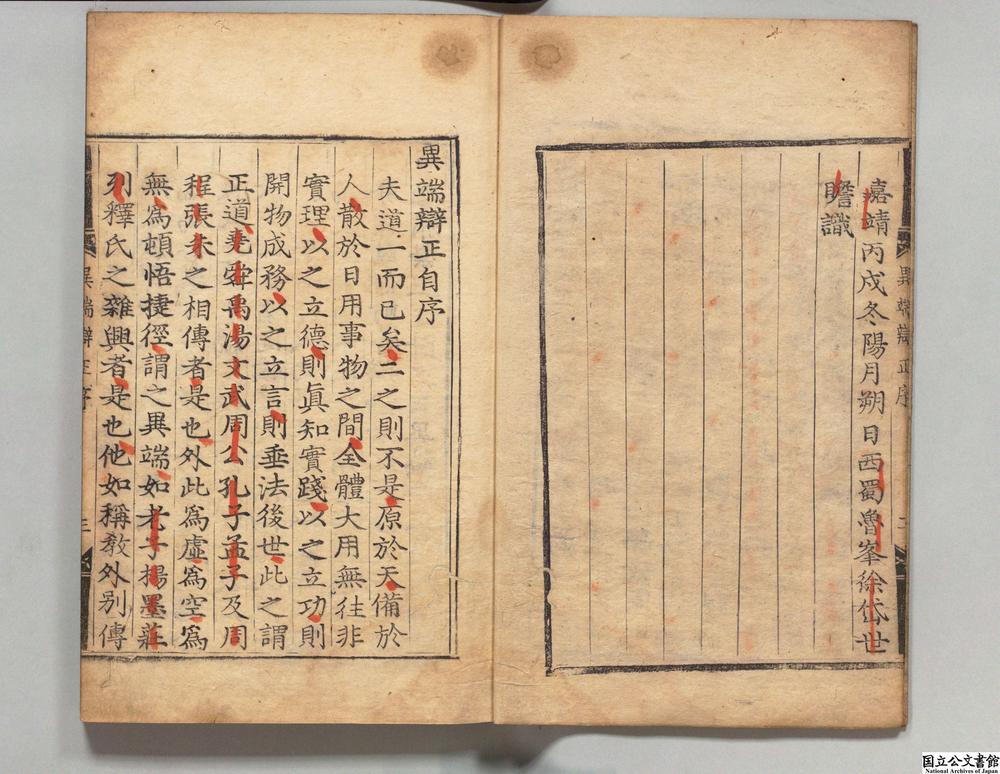 嘉靖丙戌冬陽月朔日西蜀魯峯徐岱世
瞻識
異端辯正序
二
異端辯正自序
夫道一而已矣二之則不是原於天備於
人散於日用事物之間全體大用無徃非
實理以之立德則眞知實踐以之立功則
開物成務以之立言則垂法後世此之謂
正道堯舜禹湯文武周公孔子孟子及周
程張朱之相傳者是也外此爲虛爲空爲
無爲頓悟捷徑謂之異端如老子揚墨莊
列釋氏之雜興者是也他如稱敎外別傳
異端辯正序
三
国立公文書館
National Archives of Japan